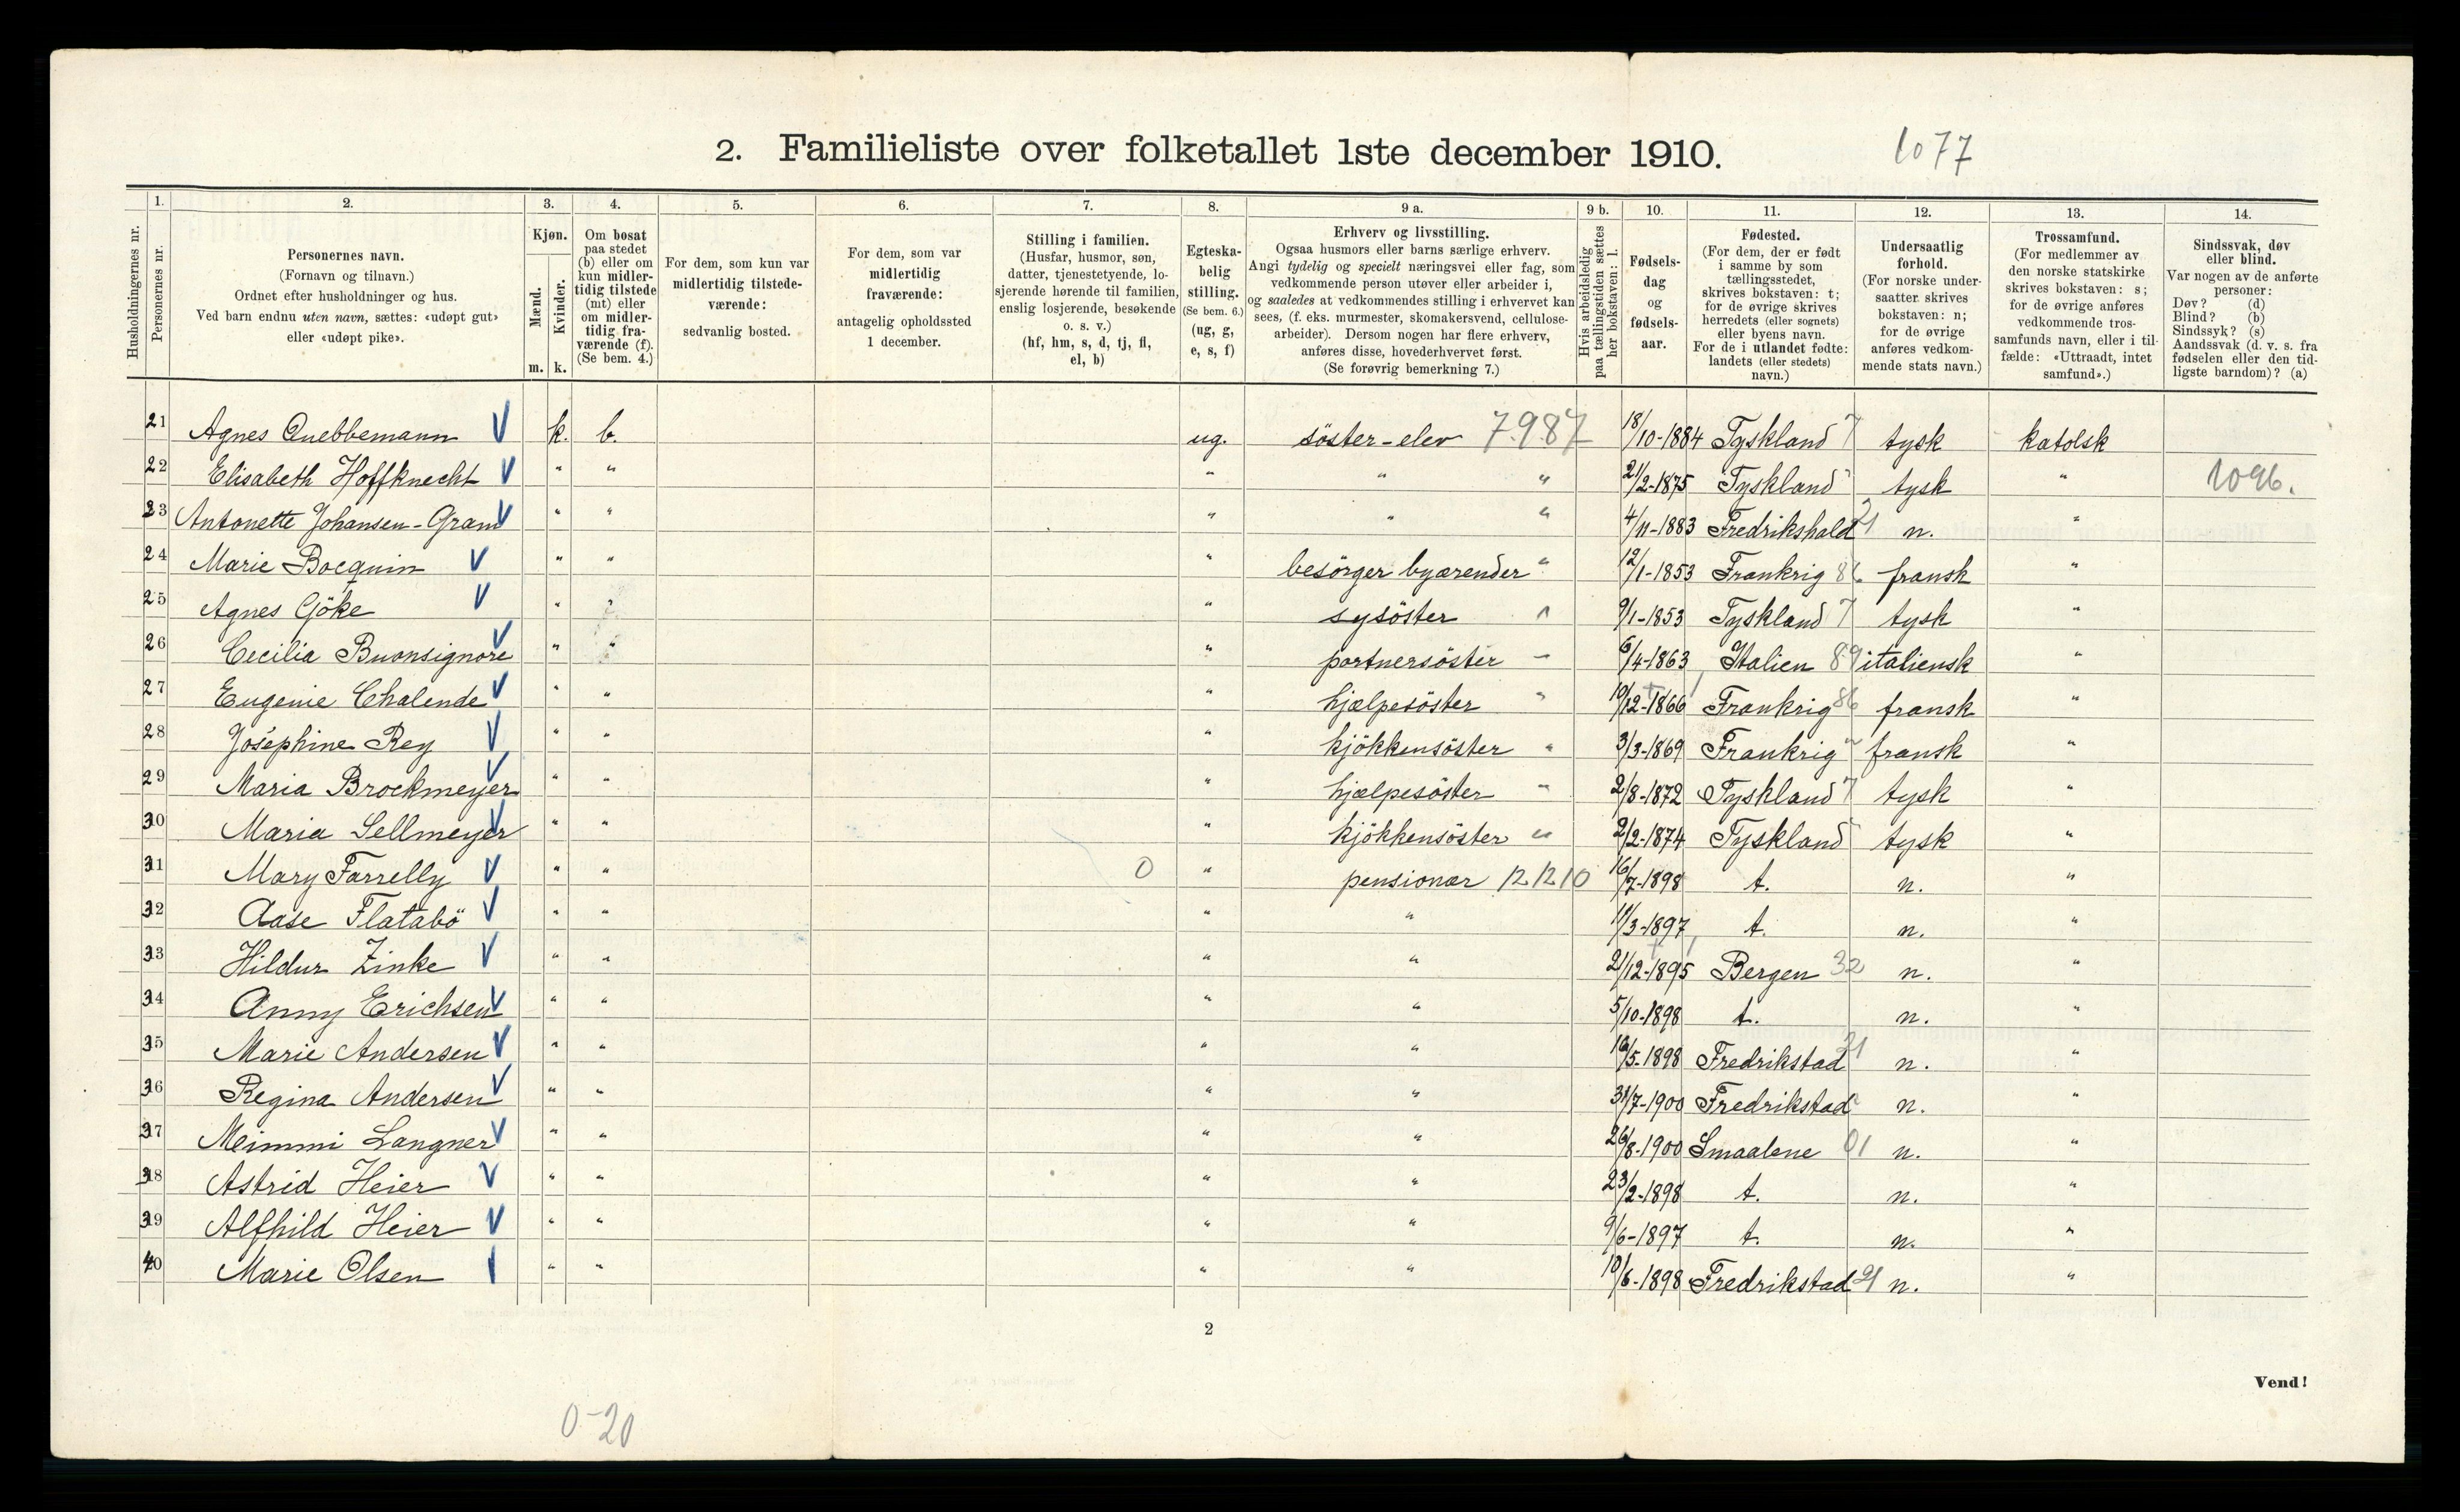 2. Familieliste over folketallet 1ste december 1910.
1077
1. 2. 3. 4. 5. 6. 7. 8. 9 a. 9 b. 10. 11. 12. 13. 14.
Husholdningernes nr.
Personernes nr.
Personernes navn.
(Fornavn og tilnavn.)
Ordnet efter husholdninger og hus.
Ved barn endnu uten navn, sættes: «udøpt gut»
eller «udøpt pike».
Kjøn.
Mænd.
Kvinder.
m. k.
Om bosat
paa stedet
(b) eller om
kun midler-
tidig tilstede
(mt) eller
om midler-
tidig fra-
værende (f).
(Se bem. 4.)
For dem, som kun var
midlertidig tilstede-
værende:
sedvanlig bosted.
For dem, som var
midlertidig
fraværende:
antagelig opholdssted
1 december.
Stilling i familien.
(Husfar, husmor, søn,
datter, tjenestetyende, lo-
sjerende hørende til familien,
enslig losjerende, besøkende
o. s. v.)
(hf, hm, s, d, tj, fl,
el, b)
Egteska-
belig
stilling.
(Se bem. 6.)
(ug, g,
e, s, f)
Erhverv og livsstilling.
Ogsaa husmors eller barns særlige erhverv.
Angi tydelig og specielt næringsvei eller fag, som
vedkommende person utøver eller arbeider i,
og saaledes at vedkommendes stilling i erhvervet kan
sees, (f. eks. murmester, skomakersvend, cellulose-
arbeider). Dersom nogen har flere erhverv,
anføres disse, hovederhvervet først.
(Se forøvrig bemerkning 7.)
Hvis arbeidsledig
paa tællingstiden sættes
her bokstaven: l.
Fødsels-
dag
og
fødsels-
aar.
Fødested.
(For dem, der er født
i samme by som
tællingsstedet,
skrives bokstaven: t;
for de øvrige skrives
herredets (eller sognets)
eller byens navn.
For de i utlandet fødte:
landets (eller stedets)
navn.)
Undersaatlig
forhold.
(For norske under-
saatter skrives
bokstaven: n;
for de øvrige
anføres vedkom-
mende stats navn.)
Trossamfund.
(For medlemmer av
den norske statskirke
skrives bokstaven: s;
for de øvrige anføres
vedkommende tros-
samfunds navn, eller i til-
fælde: «Uttraadt, intet
samfund».)
Sindssvak, døv
eller blind.
Var nogen av de anførte
personer:
Døv? (d)
Blind? (b)
Sindssyk? (s)
Aandssvak (d. v. s. fra
fødselen eller den tid-
ligste barndom)? (a)
21 Agnes Quebbemann V k. b. ug. söster-elev 7987 18/10-1884 Tyskland 7 tysk katolsk
22 Elisabeth Hoffknecht V " " " " " 21/2-1875 Tyskland " tysk " 1096.
23 Antonette Johansen-Gram V " " " " " 4/11-1883 Fredrikshald 21 n. "
24 Marie Bocquin V " " " besörger byærender " 12/1-1853 Frankrig 86 fransk "
25 Agnes Göke V " " " sysöster " 9/1-1853 Tyskland 7 tysk "
26 Cecilia Buonsignore V " " " portnersöster " 6/4-1863 Italien 89 italiensk "
27 Eugenie Chalende V " " " hjælpesöster " 10/12-1866 Frankrig 86 fransk "
28 Joséphine Rey V " " " kjökkensöster " 3/3-1869 Frankrig " fransk "
29 Maria Brockmeyer V " " " hjælpesöster " 2/8-1872 Tyskland 7 tysk "
30 Maria Sellmeyer V " " " kjökkensöster " 2/2-1874 Tyskland " tysk "
31 Mary Farrelly V " " 0 " pensionær 12 12 10 16/7-1898 t. n. "
32 Aase Flatabö V " " " " 11/3-1897 t. n. "
33 Hildur Zinke V " " " " 21/12-1895 Bergen 32 n. "
34 Anny Erichsen V " " " " 5/10-1898 t. n. "
35 Marie Andersen V " " " " 16/5-1898 Fredrikstad 21 n. "
36 Regina Andersen V " " " " 31/7-1900 Fredrikstad " n. "
37 Meimmi Langner V " " " " 26/8-1900 Smaalene 01 n. "
38 Astrid Heier V " " " " 23/2-1898 t. n. "
39 Alfhild Heier V " " " " 9/6-1897 t. n. "
40 Marie Olsen " " " " 10/6-1898 Fredrikstad 21 n. "
2
Vend!
0-20